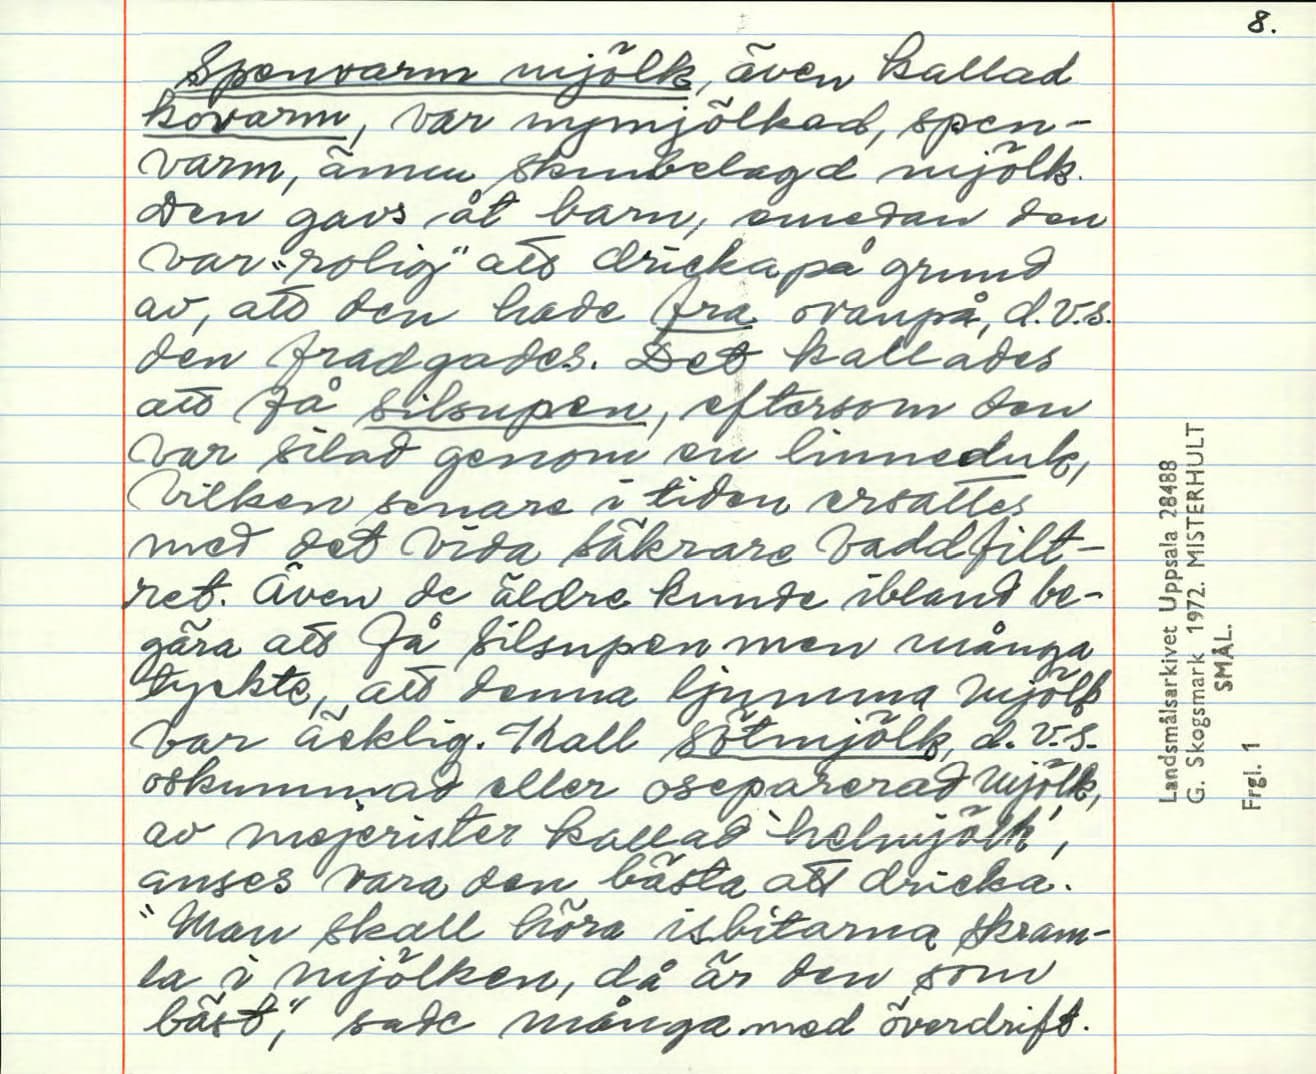 8.
Spenvarm mjölk, även kallad
kovarm, var nymjölkad, spen-
varm, ännu skumbelagd mjölk.
Den gavs åt barn, emedan den
var "rolig" att dricka på grund
av, att den hade fra ovanpå, d.v.s.
den fradgades. Det kallades
att få silsupen, eftersom den
var silad genom en linneduk,
vilken senare i tiden ersattes
med det vida säkrare vaddfilt-
ret. Även de äldre kunde ibland be-
gära att få silsupen men många
tyckte, att denna ljumma mjölk
var äcklig. Kall sötmjölk, d.v.s.
oskummad eller oseparerad mjölk,
av mejerister kallad 'helmjölk',
anses vara den bästa att dricka.
"Man skall höra isbitarna skram-
la i mjölken, då är den som
bäst," sade många med överdrift.
Landsmålsarkivet Uppsala 28488
G. Skogsmark 1972. MISTERHULT
SMÅL.
Frgl. 1